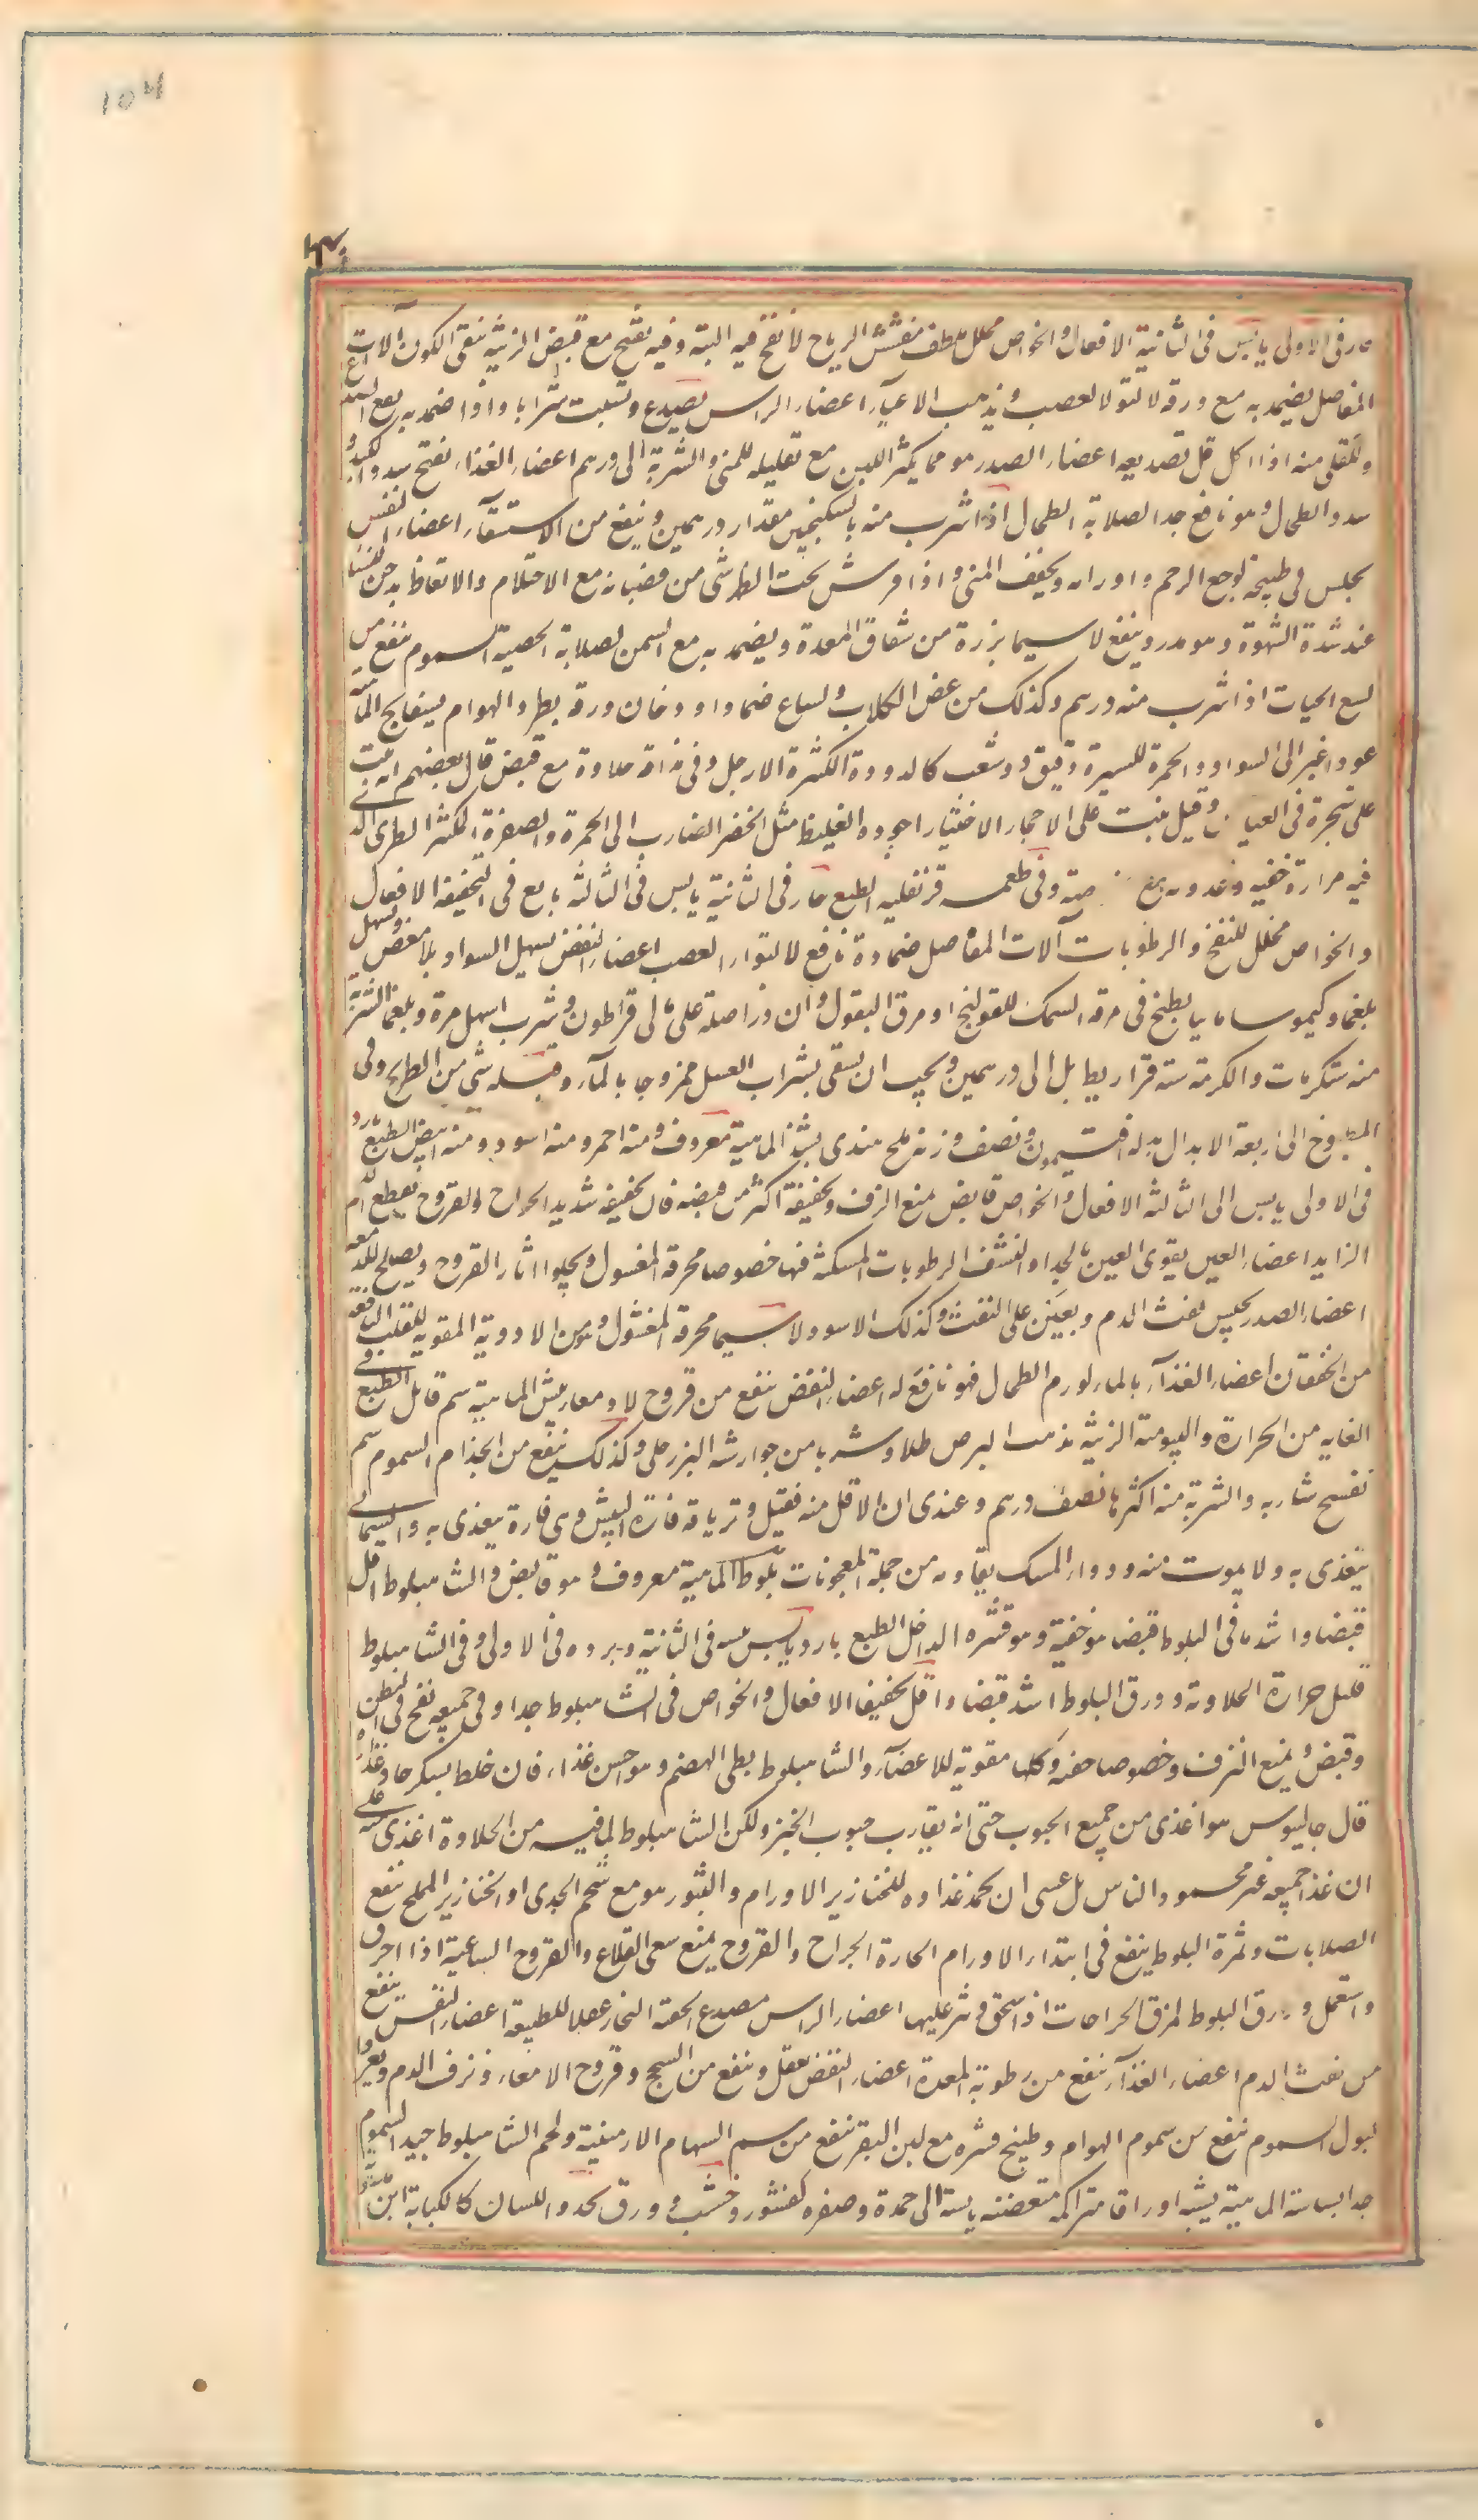 حار فى الاولى يابس فى الثانية الافعال والخواص محلل ملطف مفشش الرياح لا نفخ فيه البتة وفيه تفتيح مع قبض الزينة ينقى الكون آلات
المفاصل يضمد به مع ورقه لالتوا لعصب ويذهب الاعيآء اعضاء الراس يصدع ويسبت شرابا واذا ضمد به مع
والمقلى منه اذا اكل قل تصديعه اعضاء الصدر هو مما يكثر اللبن مع تقليله للمنى والشربة الى درهم اعضاء الغذاء يفتح سدد الكبد و
سدد الطحال وهو نافع جدا لصلابة الطحال اذا شرب منه بالسكنجبين مقدار درهمين وينفع من الاستسقآء اعضاء النفض
يجلس فى طبيخه لوجع الرحم واورامه ويجفف المنى واذا فرش تحت الظهر شى من قضبانه منع الاحتلام والانعاظ يدخن
عند شدة الشهوة وهو مدر وينفع لا سيما بزره من شقاق المعدة ويضمد به مع السمن لصلابة الخصية السموم ينفع من
لسع الحيات اذا شرب منه درهم وكذلك من عض الكلاب والسباع ضمادا ودخان ورقه يطرد الهوام بسفايج الماهية
عود اغبر الى السواد والحمرة اليسيرة دقيق ذو شعب كالدودة الكثيرة الارجل وفى مذاقه حلاوة مع قبض قال بعضهم انه ينبت
على شجرة فى الغياض وقيل ينبت على الاحجار الاختيار اجوده الغليظ مثل الخنصر الضارب الى الحمرة والصفرة المكتنز الطرى الذى
فيه مرارة خفيه وعذوبة مع وفى طعمه قرنفليه الطبع حار فى الثانية يابس فى الثالثه بالغ فى التجفيف الافعال
والخواص محلل للنفخ والرطوبات آلات المفاصل ضماده نافع لالتواء العصب اعضاء النفض يسهل السوادء بلا مغص ويسهل
بلغما وكيموسا مائيا يطبخ فى مرقه السمك للقولنج او مرق البقول وان ذر اصله على مالى قراطون وشرب اسهل مرة وبلغما الشربة
منه ست كرمات والكرمة ستة قراريط بل الى درهمين ويجب ان يسقى بشراب العسل ممزوجا بالمآء وقبله شى من الطريخ وفى
المطبوخ الى اربعة الابدال بدله افتيمون ونصف وزنه ملح هندى بسذ الماهية معروف ومنه احمر ومنه اسود ومنه ابيض الطبع بارد
فى الاولى يابس الى الثالثه الافعال والخواص قابض يمنع النزف وتجفيفه اكثر من قبضه فان تجفيفه شديد الجراح والقروح يقطع اللحم
الزايد اعضاء العين يقوى العين بالجلا والنشف الرطوبات المسكنه فيها خصوصا محرقه المغسول ويجلو اثار القروح ويصلح للدمعه
اعضاء الصدر يحبس نفث الدم ويعين على النفث وكذلك الاسود لا سيما محرقه المغسول وهو من الادوية المقويه للقلب النافعه
من الخفقان اعضاء الغذآء بالماء لورم الطحال فهو نافع له اعضاء النفض ينفع من قروح الامعاء بيش الماهية سم قاتل الطبع فى
الغايه من الحرارة واليبوسة الزينة يذهب البرص طلاء وشربا من جوارشه البزرجلى وكذلك ينفع من الجذام السموم سم
يفسخ شاربه والشربة منه اكثرها نصف درهم وعندى ان الاقل منه قتيل وترياقه فارة البيش وهى فارة يتغذى به والسمانى
يتغذى به ولا يموت منه ودواء المسك يقاومه من جملة المعجونات بلوط الماهية معروف وهو قابض والشاهبلوط اقل
قبضا واشد ما فى البلوط قبضا هو خفيه وهو قشره الداخل الطبع بارد يابس يبسه فى الثانية وبرده فى الاولى وفى الشاهبلوط
قليل حرارة لحلاوته وورق البلوط اشد قبضا واقل تجفيفا الافعال والخواص فى الشاهبلوط جلاء وفى جميعه نفخ فى البطن
وقبض ويمنع النزف وخصوصا جفته وكلها مقوية للاعضآء والشاهبلوط بطى الهضم وهو احسن غذاء فان خلط بسكر جاد غذاؤه
قال جالينوس هو اغذى من جميع الحبوب حتى انه يقارب حبوب الخبز ولكن الشاهبلوط لما فيه من الحلاوة اغذى منه على
ان غذا جميعه غير محمود للناس بل عسى ان يحمد غذاوه للخنازير الاورام والبثور هو مع شحم الجدى او الخنازير المملح ينفع
الصلابات وثمرة البلوط ينفع فى ابتداء الاورام الحارة الجراح والقروح يمنع سعى القلاع والقروح الساعية اذا احرق
واستعمل وورق البلوط لمزق الجراحات اذا سحق ونثر عليها اعضاء الراس مصدع لحقنه البخار عقلا للطبيعة اعضاء النفس ينفع
من نفث الدم اعضاء الغذآء ينفع من رطوبة المعدة اعضاء النفض يعقل وينفع من السحج وقروح الامعاء ونزف الدم ويغزر
لبول السموم ينفع من سموم الهوام وطبيخ قشره مع لبن البقر ينفع من سم السهام الارمنية ولحم الشاهبلوط جيد السموم
جدا بسباسة الماهية يشبه اوراقا متراكمة متغضنه يابسة الى حمرة وصفره كقشور وخشب وورق تحذو اللسان كالكبابة ابن